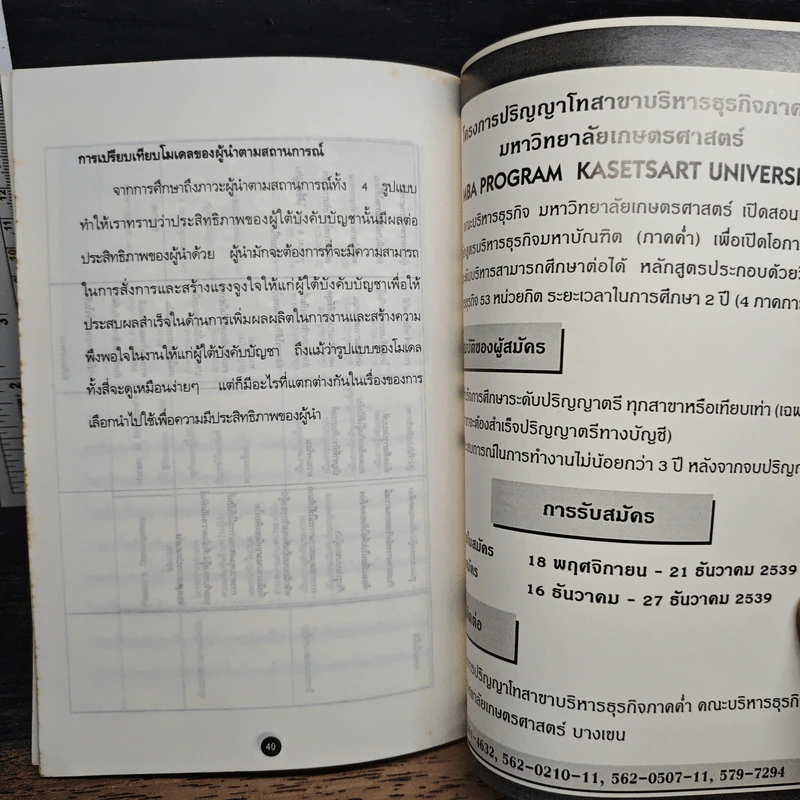 การเปรียบเทียบโมเดลของผู้นำตามสถานการณ์
จากการศึกษาถึงภาวะผู้นำตามสถานการณ์ทั้ง 4 รูปแบบ
ทำให้เราทราบว่าประสิทธิภาพของผู้ใต้บังคับบัญชานั้นมีผลต่อ
ประสิทธิภาพของผู้นำด้วย ผู้นำมักจะต้องการที่จะมีความสามารถ
ในการสั่งการและสร้างแรงจูงใจให้แก่ผู้ใต้บังคับบัญชาเพื่อให้
ประสบผลสำเร็จในด้านการเพิ่มผลผลิตในการงานและสร้างความ
พึงพอใจในงานให้แก่ผู้ใต้บังคับบัญชา ถึงแม้ว่ารูปแบบของโมเดล
ทั้งสี่จะดูเหมือนง่ายๆ แต่ก็มีอะไรที่แตกต่างกันในเรื่องของการ
เลือกนำไปใช้เพื่อความมีประสิทธิภาพของผู้นำ
40
โครงการปริญญาโทสาขาบริหารธุรกิจภาค
มหาวิทยาลัยเกษตรศาสตร์
MBA PROGRAM KASETSART UNIVERSI
คณะบริหารธุรกิจ มหาวิทยาลัยเกษตรศาสตร์ เปิดสอน
สูตรบริหารธุรกิจมหาบัณฑิต (ภาคค่ำ) เพื่อเปิดโอกา
ดับบริหารสามารถศึกษาต่อได้ หลักสูตรประกอบด้วย
ธุรกิจ 53 หน่วยกิต ระยะเวลาในการศึกษา 2 ปี (4 ภาคการ
บัติของผู้สมัคร
ร็จการศึกษาระดับปริญญาตรี ทุกสาขาหรือเทียบเท่า (เฉพ
จะต้องสำเร็จปริญญาตรีทางบัญชี)
ะสบการณ์ในการทำงานไม่น้อยกว่า 3 ปี หลังจากจบปริญญ
การรับสมัคร
ใบสมัคร 18 พฤศจิกายน - 21 ธันวาคม 2539
มัคร 16 ธันวาคม - 27 ธันวาคม 2539
ต่อ
การปริญญาโทสาขาบริหารธุรกิจภาคค่ำ คณะบริหารธุรกิ
ทยาลัยเกษตรศาสตร์ บางเขน
1-4632, 562-0210-11, 562-0507-11, 579-7294